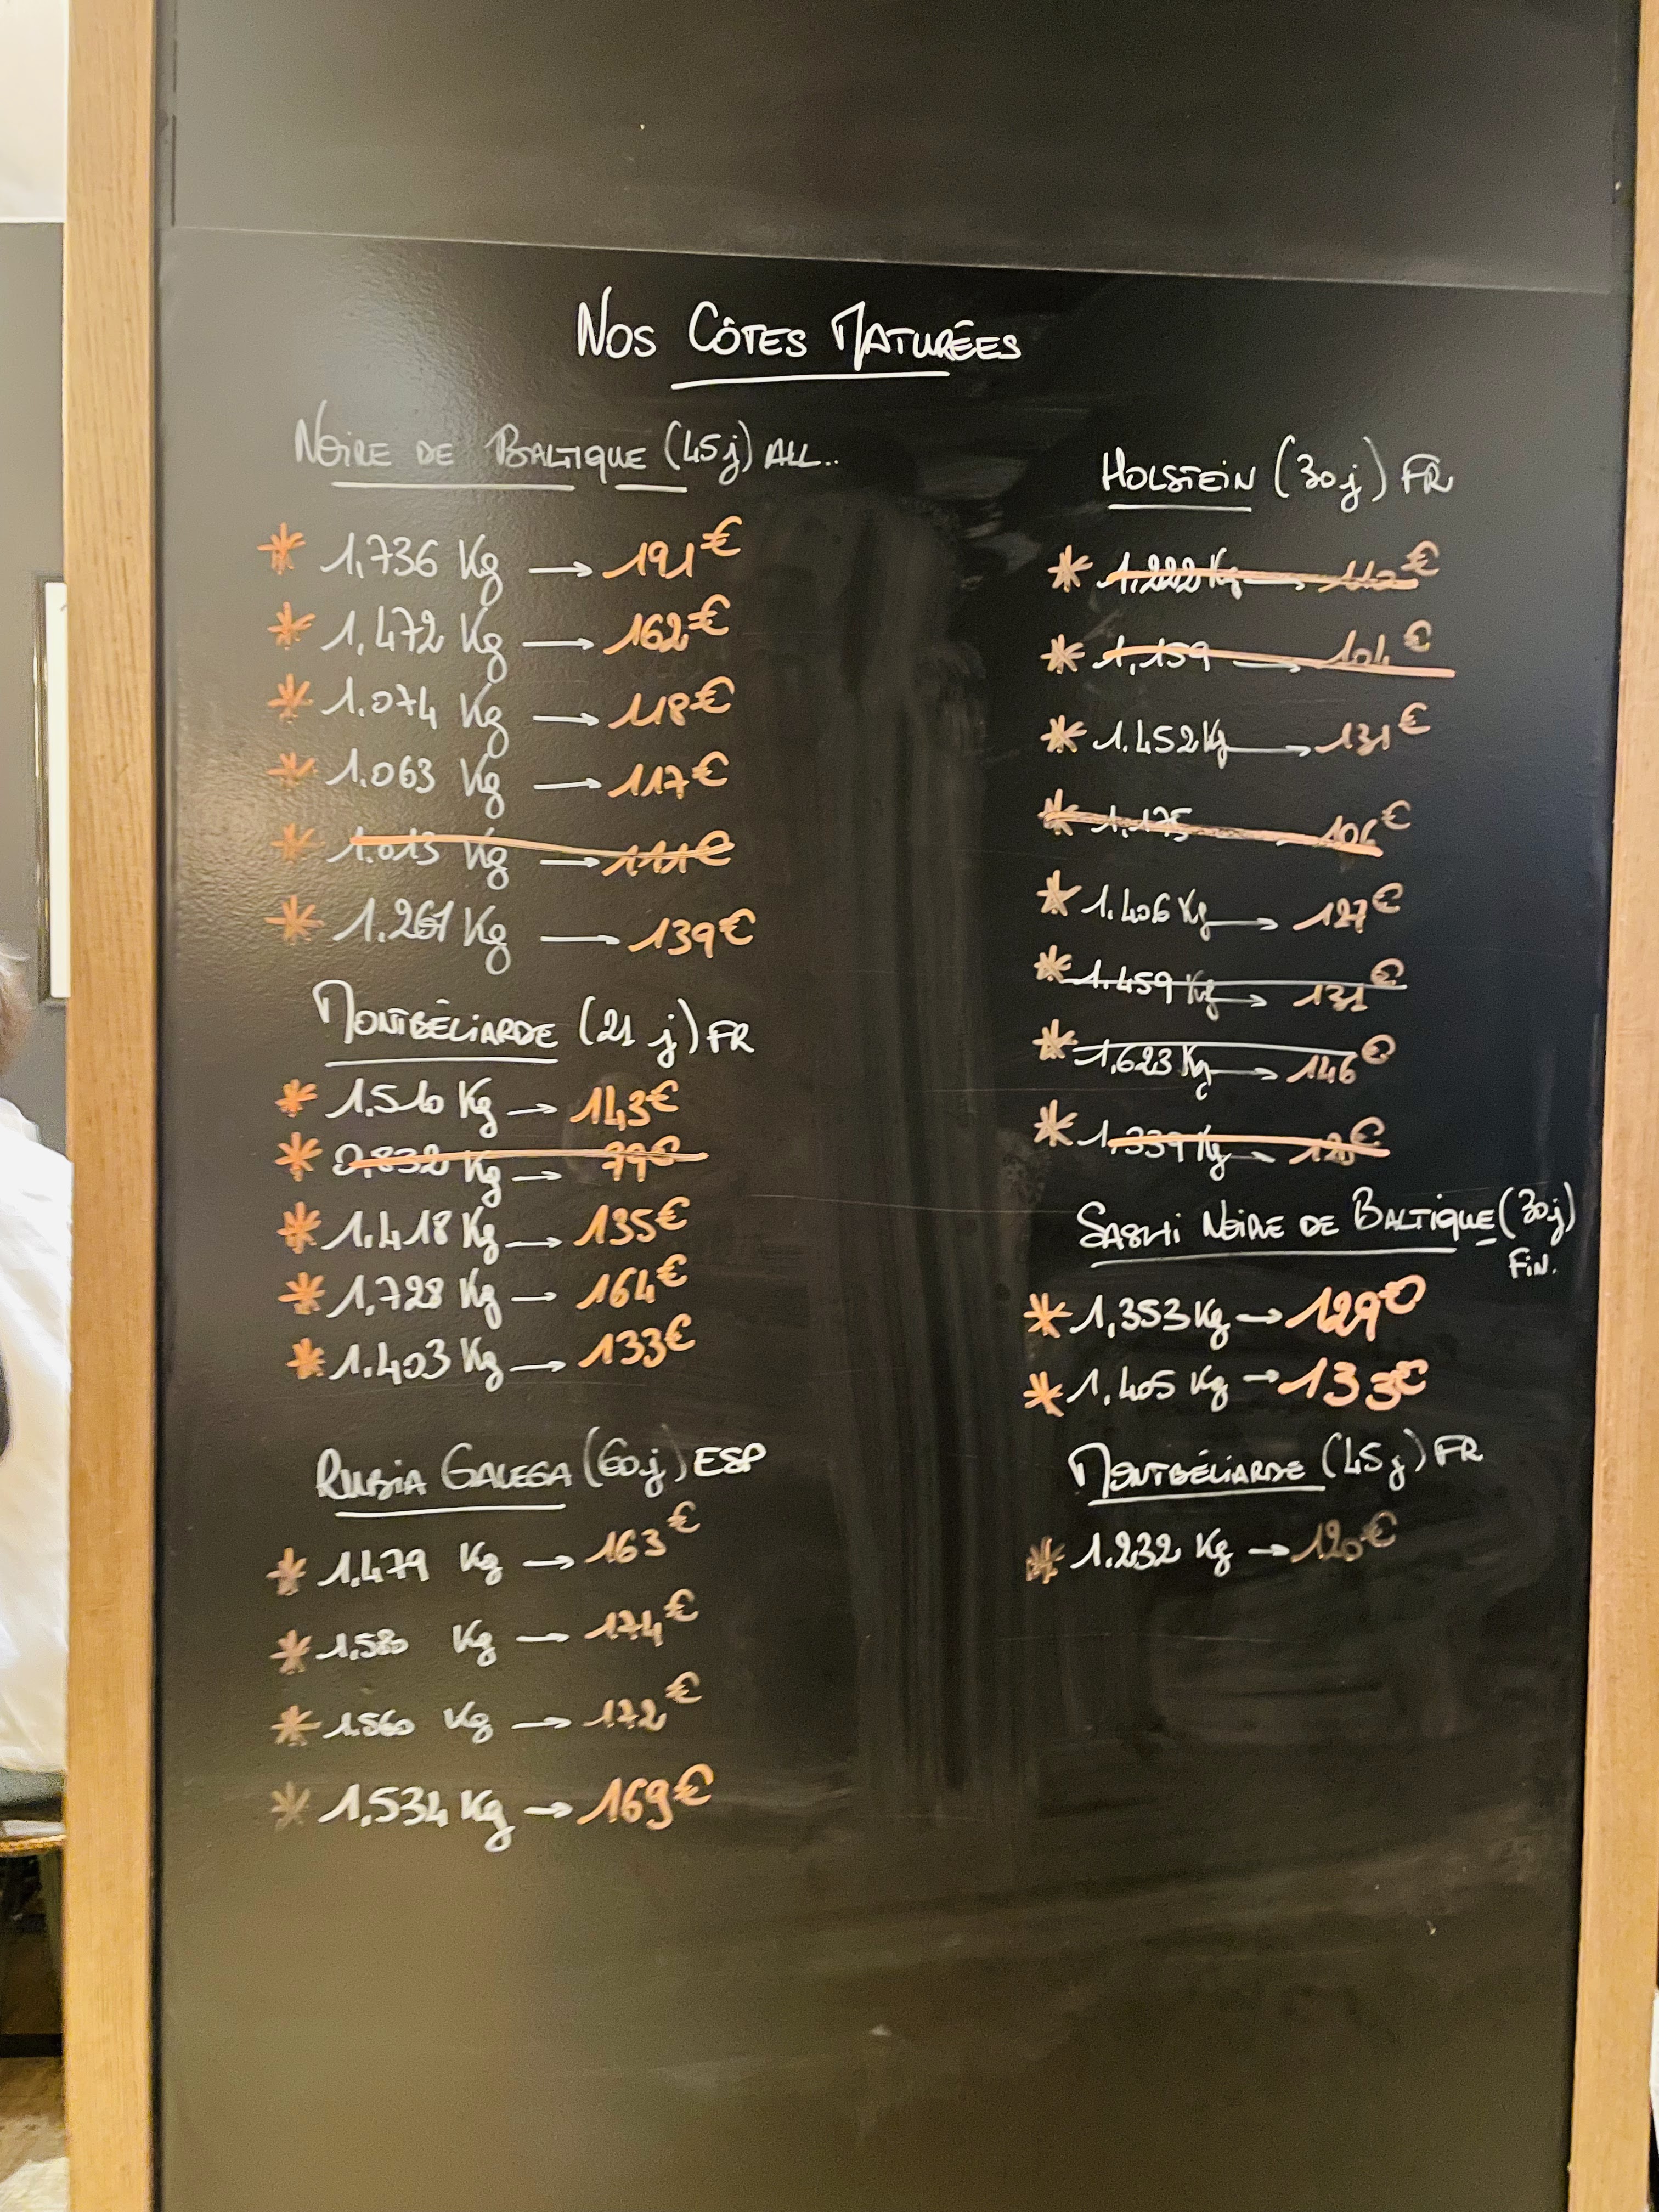 Nos Côtes Maturées
Noire de Baltique (45j) ALL..
* 1,736 Kg → 191€
* 1,472 Kg → 162€
* 1.074 Kg → 118€
* 1.063 Kg → 117€
* 1.013 Kg → 111€
* 1.261 Kg → 139€
Montbéliarde (21 j) FR
* 1.510 Kg → 143€
* 0,832 Kg → 79€
* 1.418 Kg → 135€
* 1,728 Kg → 164€
* 1.403 Kg → 133€
Rubia Galega (60j) ESP
* 1.479 Kg → 163€
* 1.580 Kg → 174€
* 1.560 Kg → 172€
* 1.534 Kg → 169€
Holstein (30j) FR
* 1,222 Kg → 110€
* 1,159 → 104€
* 1.452 Kg → 131€
* 1,175 → 106€
* 1.406 Kg → 127€
* 1.459 Kg → 131€
* 1,623 Kg → 146€
* 1,339 Kg → 120€
Sashi Noire de Baltique (30j)
Fin.
* 1,353 Kg → 129€
* 1,405 Kg → 133€
Montbéliarde (45j) FR
* 1.232 Kg → 120€